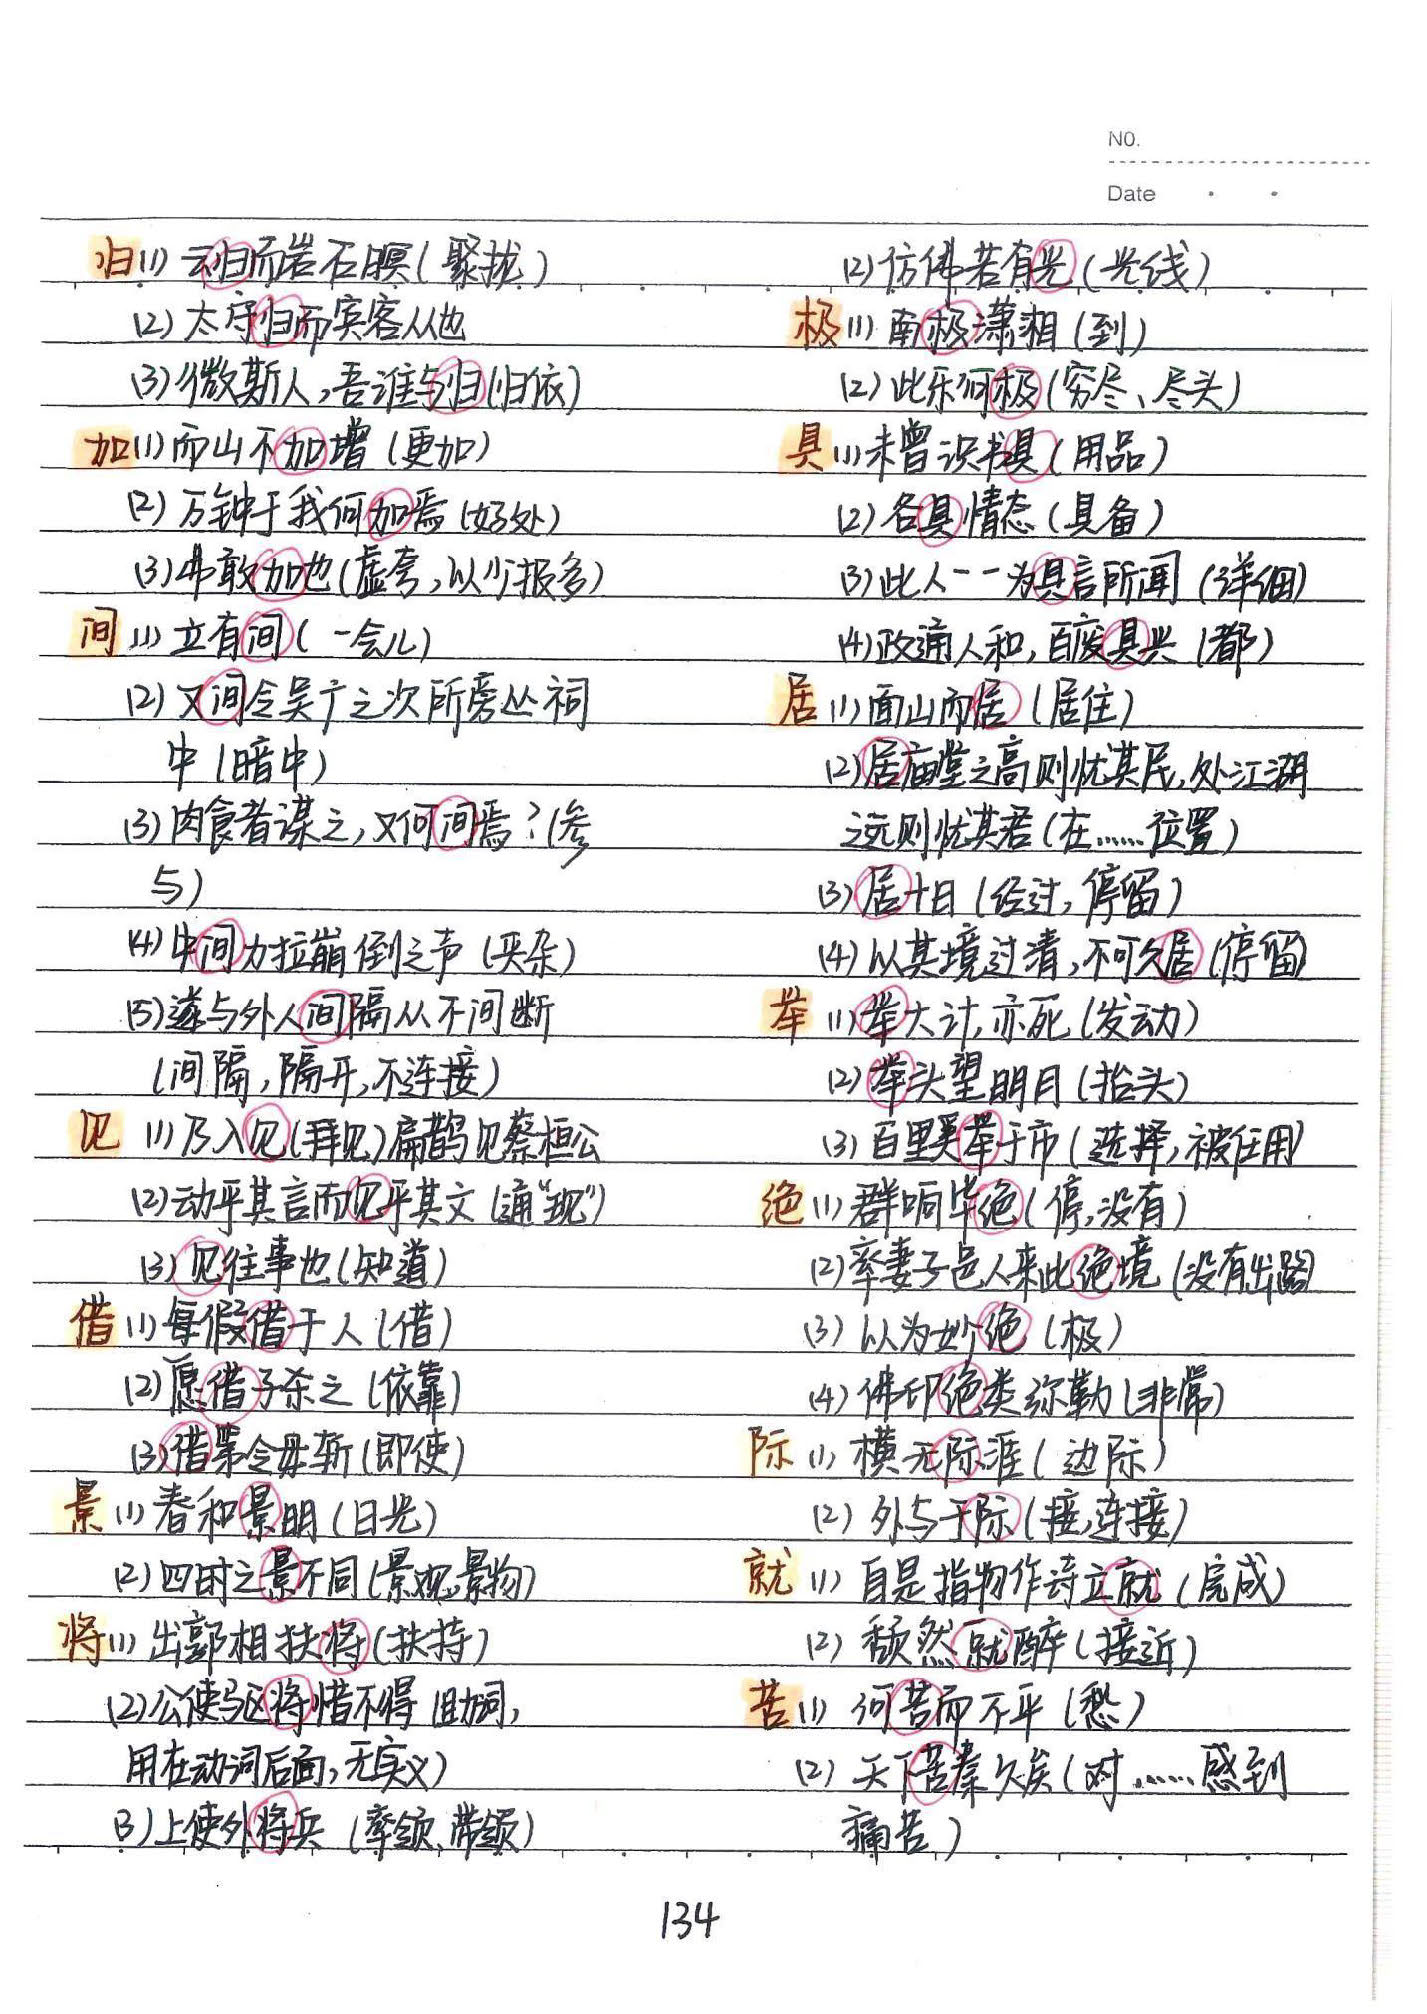 NO.
Date
归(1) 云归而岩石暝(聚拢)
(2) 太守归而宾客从也
(3) 微斯人,吾谁与归(归依)
加(1) 而山不加增(更加)
(2) 万钟于我何加焉(好处)
(3) 弗敢加也(虚夸,以少报多)
间(1) 立有间(一会儿)
(2) 又间令吴广之次所旁丛祠
中(暗中)
(3) 肉食者谋之,又何间焉?(参
与)
(4) 中间力拉崩倒之声(夹杂)
(5) 遂与外人间隔从不间断
(间隔,隔开,不连接)
见(1) 乃入见(拜见)扁鹊见蔡桓公
(2) 动乎其言而见乎其文(通“现”)
(3) 见往事也(知道)
借(1) 每假借于人(借)
(2) 愿借子杀之(依靠)
(3) 借第令毋斩(即使)
景(1) 春和景明(日光)
(2) 四时之景不同(景观,景物)
将(1) 出郭相扶将(扶持)
(2) 公使驱将惜不得(助词,
用在动词后面,无实义)
(3) 上使外将兵(率领、带领)
(2) 仿佛若有光(光线)
极(1) 南极潇湘(到)
(2) 此乐何极(穷尽、尽头)
具(1) 未曾识书具(用品)
(2) 各具情态(具备)
(3) 此人一一为具言所闻(详细)
(4) 政通人和,百废具兴(都)
居(1) 面山而居(居住)
(2) 居庙堂之高则忧其民,处江湖
之远则忧其君(在……位置)
(3) 居十日(经过,停留)
(4) 以其境过清,不可久居(停留)
举(1) 举大计,亦死(发动)
(2) 举头望明月(抬头)
(3) 百里奚举于市(选择,被任用)
绝(1) 群响毕绝(停,没有)
(2) 率妻子邑人来此绝境(没有出路)
(3) 以为妙绝(极)
(4) 佛印绝类弥勒(非常)
际(1) 横无际涯(边际)
(2) 外与天际(接,连接)
就(1) 自是指物作诗立就(完成)
(2) 颓然就醉(接近)
苦(1) 何苦而不平(愁)
(2) 天下苦秦久矣(对……感到
痛苦)
134